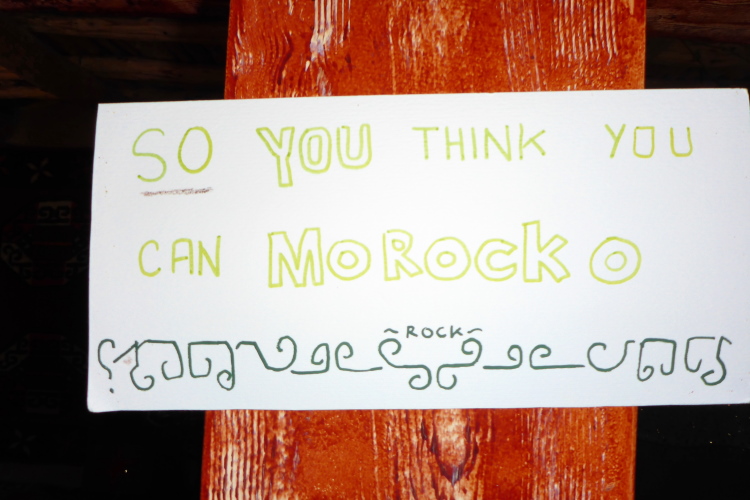 SO YOU THINK YOU
CAN MOROCKO
~ROCK~